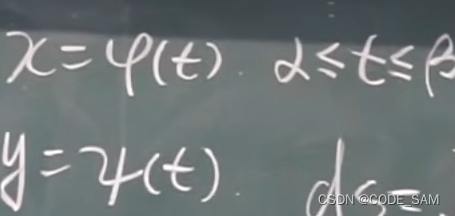 x = φ(t). α ≤ t ≤ β
y = ψ(t). ds =
CSDN @CODE_SAM